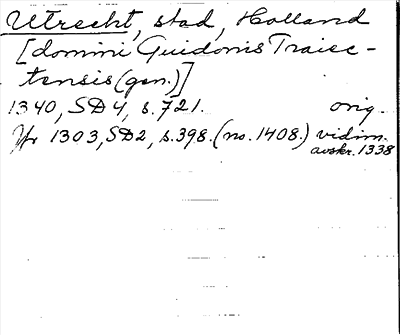 Utrecht, stad, Holland
[domini Guidonis Traiec-
tensis (gen.)]
1340, SD 4, s. 721. orig.
Jfr 1303, SD 2, s. 398. (no. 1408.) vidim.
avskr. 1338